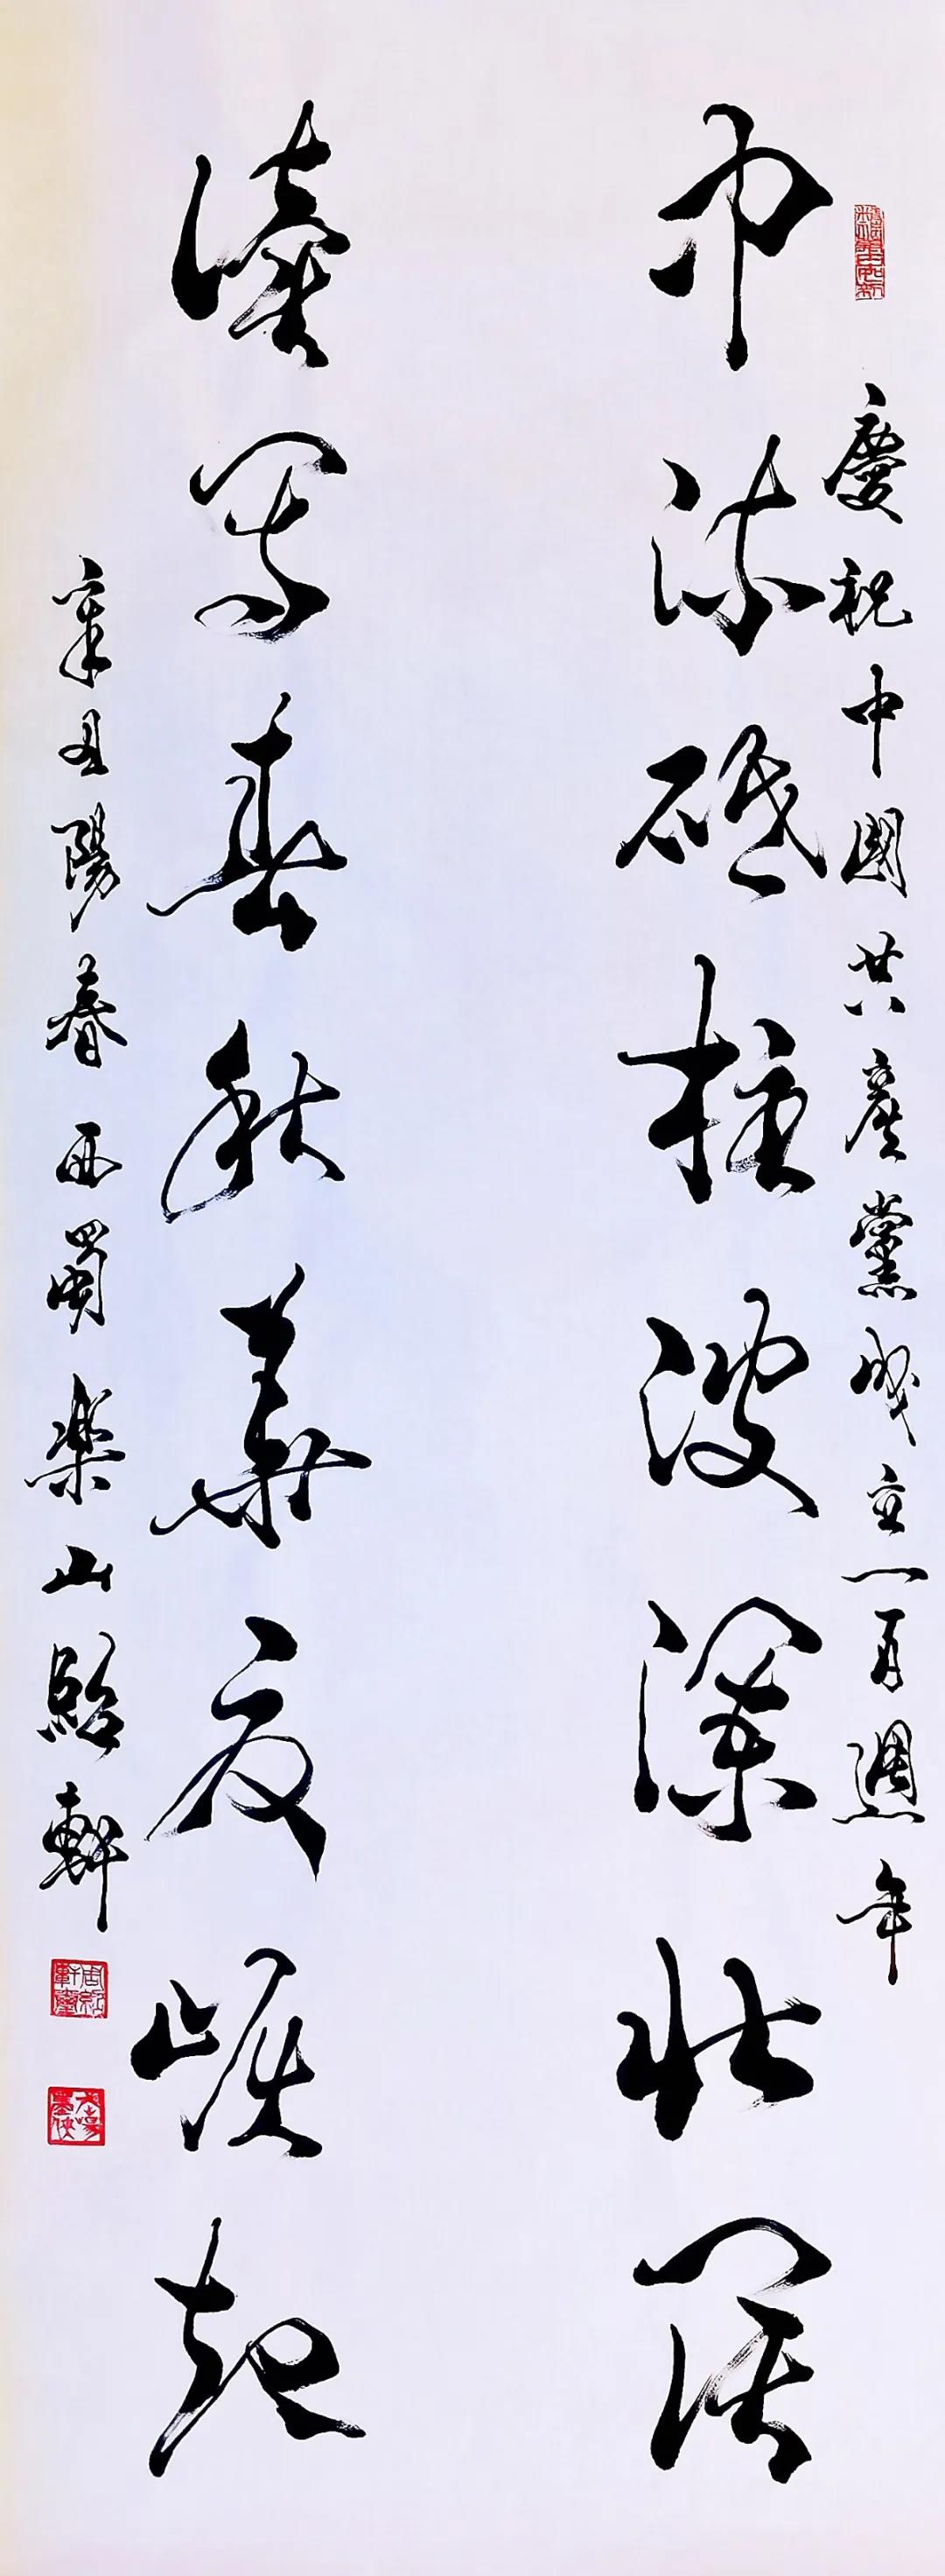 慶祝中國共產黨成立一百週年
中流砥柱波瀾壯闊
寫春秋華夏崛起
辛丑陽春西蜀楽山紹軒